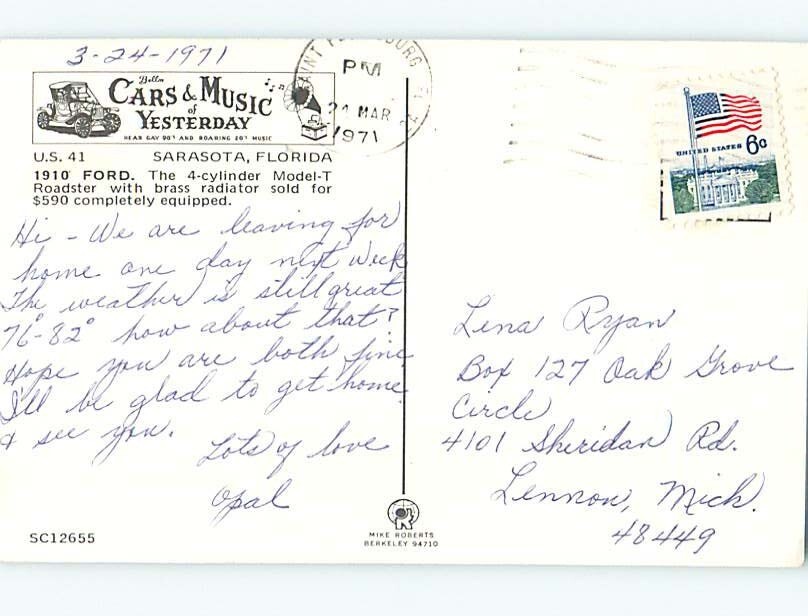 3-24-1971
Bellm
CARS & MUSIC
of
YESTERDAY
HEAR GAY 90'S AND ROARING 20'S MUSIC
U.S. 41 SARASOTA, FLORIDA
1910 FORD. The 4-cylinder Model-T
Roadster with brass radiator sold for
$590 completely equipped.
Hi - We are leaving for
home one day next week
The weather is still great
76°-82° how about that?
Hope you are both fine
I'll be glad to get home
& see you.
Lots of love
Opal
SC12655
MIKE ROBERTS
BERKELEY 94710
PM
24 MAR
1971
UNITED STATES 6c
Lena Ryan
Box 127 Oak Grove
Circle
4101 Sheridan Rd.
Lennon, Mich.
48449